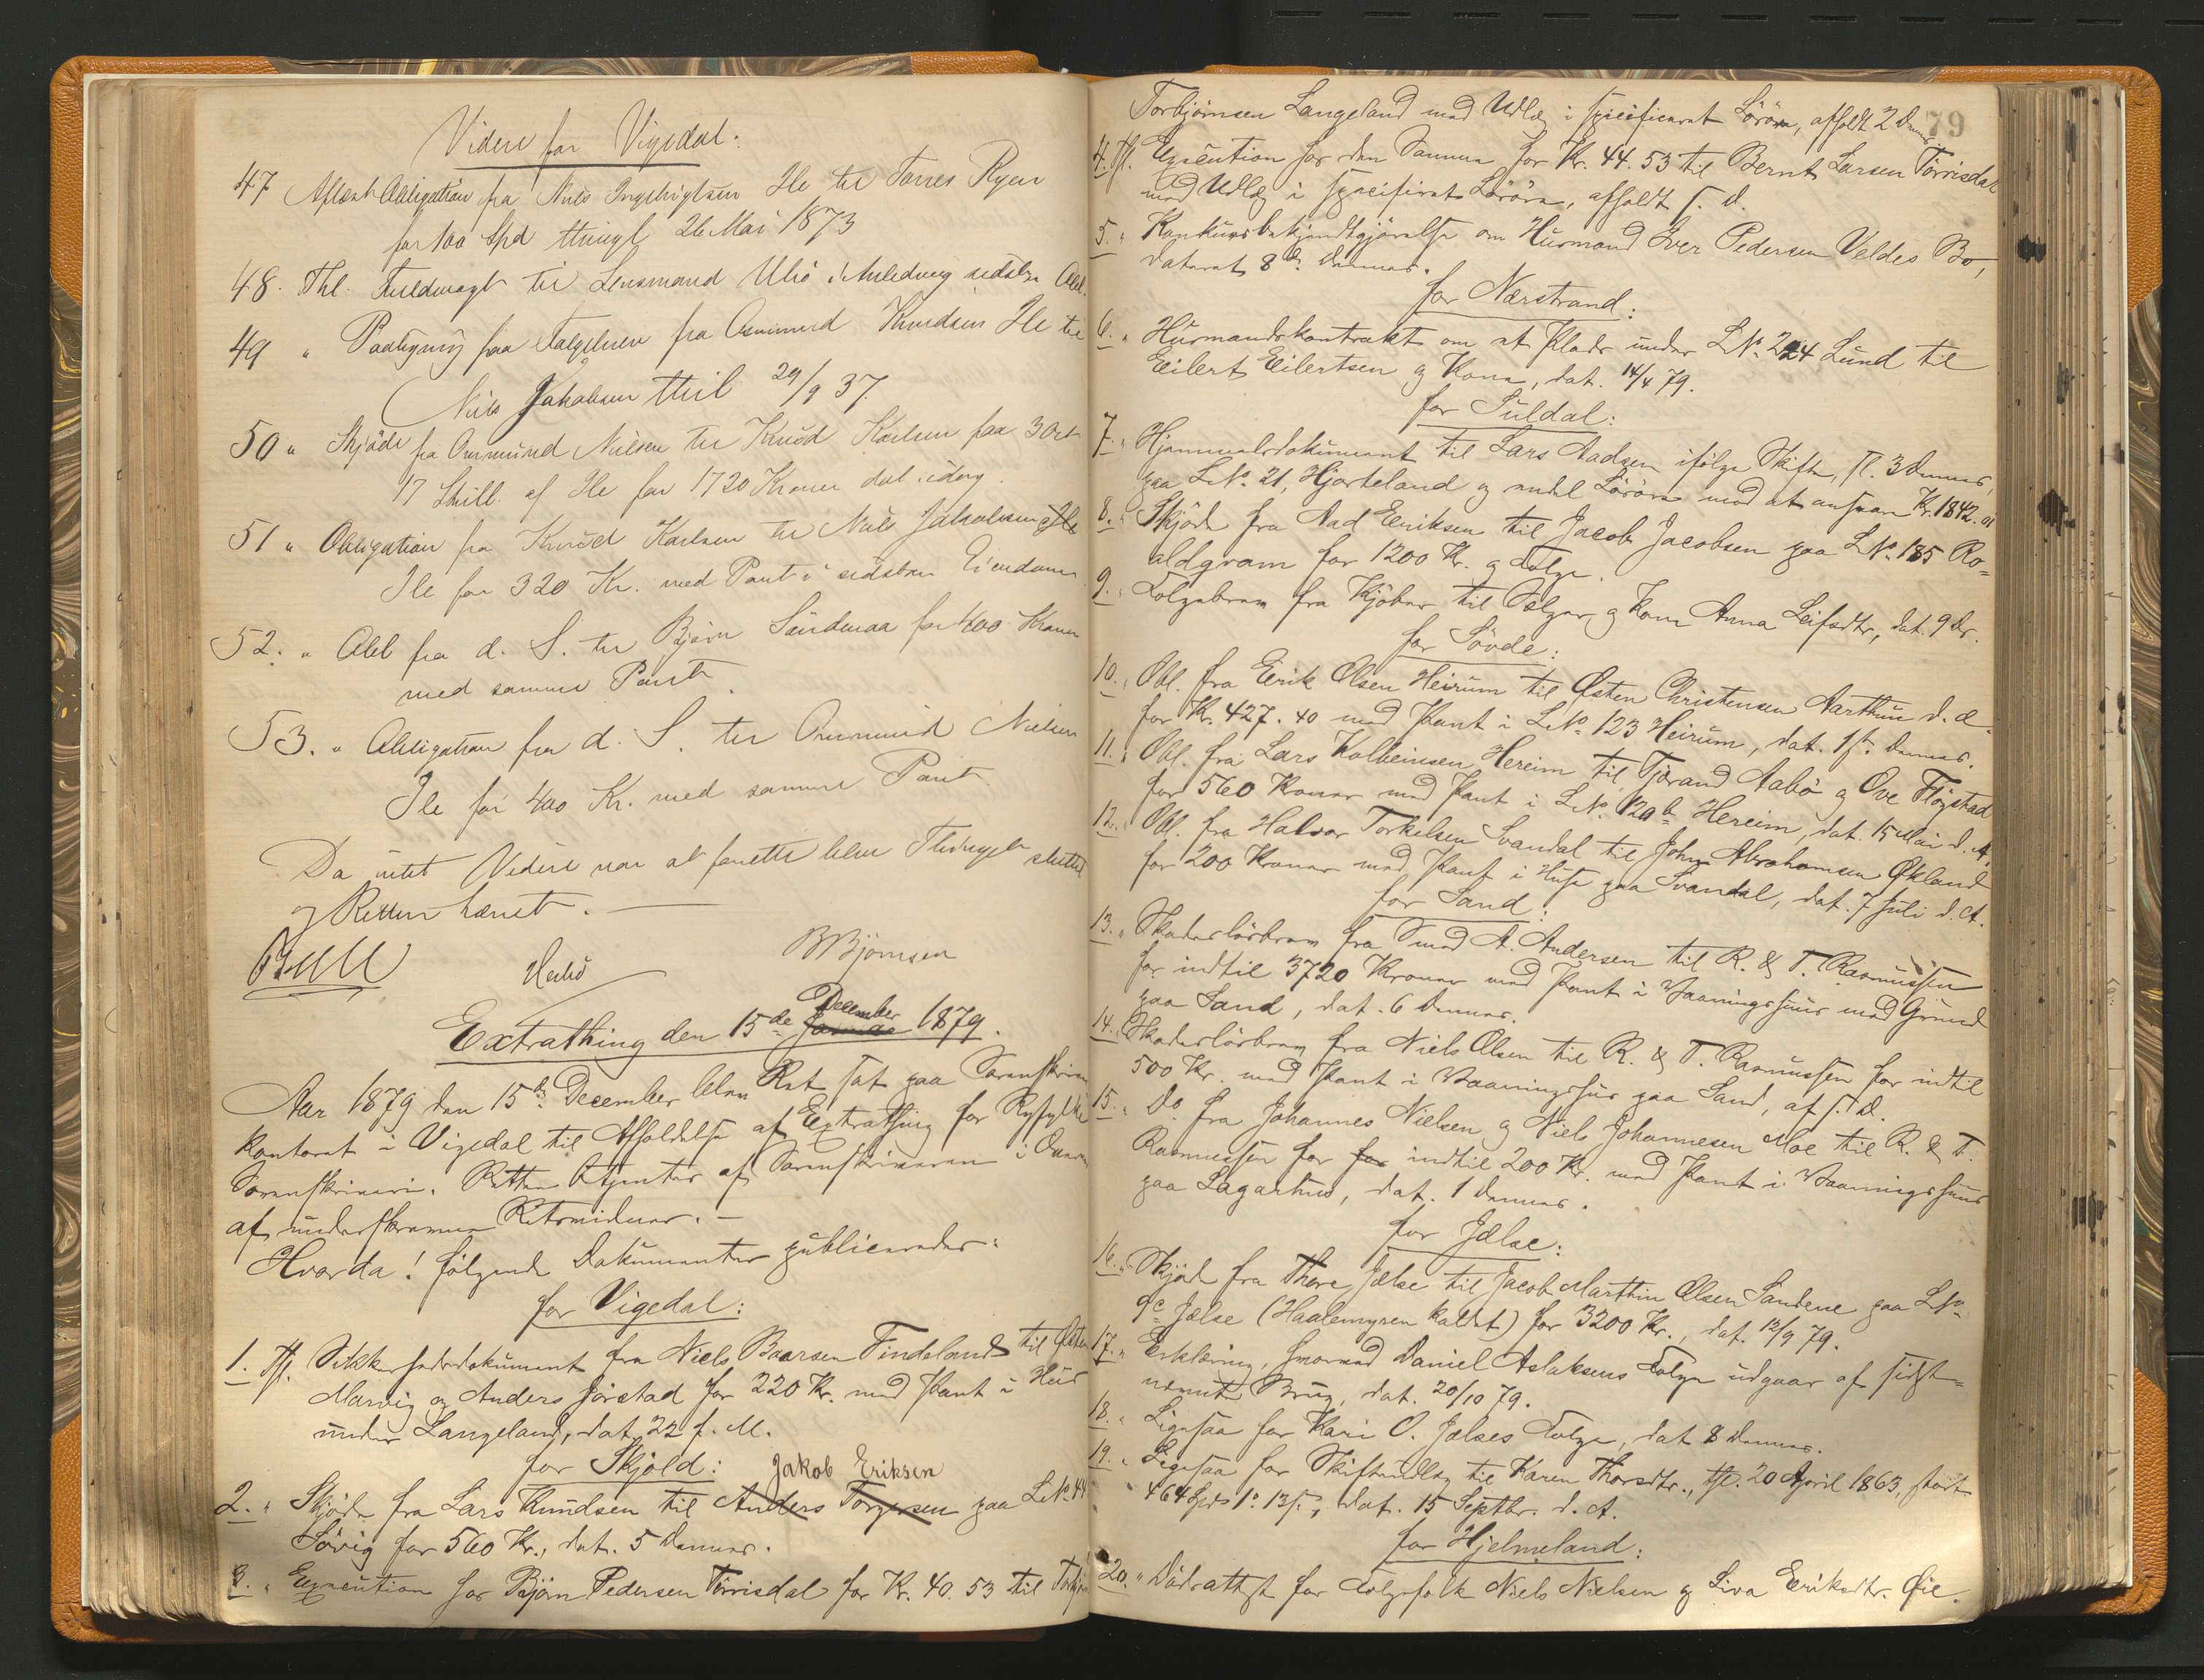 Videre for Vigedal:
47 Aflæst Obligation fra Niels Ingebrigtsen Ile til Torres Ryen
for 100 Spd thingl 26 Mai 1873
48. Thl. Fuldmagt til Lensmand Ulsø i Anledning sidste Obl.
49 " Paategning paa Følgebrev fra Osmund Knudsen Ile til
Niels Jakobsen thl 29/9 37.
50 " Skjøde fra Ommund Nielsen til Knud Karlsen paa 3 Ort
17 Skill. af Ile for 1720 Kroner dat. idag.
51 " Obligation fra Knud Karlsen til Niels Jakobsen Ile
Ile for 320 Kr. med Pant i sidstn Eiendom
52. " Obl fra d. S. til Bjørn Søndenaa for 400 Kroner
med samme Pant.
53. " Obligation fra d. S. til Ommund Nielsen
Ile for 400 Kr. med samme Pant
Da intet Videre var at forrette blev Thinget sluttet
og Retten hævet.
BBjørnsen
Extrathing den 15de December 1879.
Aar 1879 den 15de December blev Ret sat paa Sorenskriver
kontoret i Vigedal til Afholdelse af Extrathing for Ryfylke
Sorenskriveri. Retten betjentes af Sorenskriveren i Overvær
af underskrevne Retsvidner. –
Hvorda! følgende Dokumenter publiceredes:
for Vigedal:
1. Thl. Sikkerhedsdokument fra Niels Baarsen Findeland til Østen
Marvig og Anders Jørstad for 220 Kr. med Pant i Hus
under Langeland, dat 22 f. M.
for Skjold:
Jakob Eriksen
2. " Skjøde fra Lars Knudsen til Anders Torgersen paa LNo 44
Søvig for 560 Kr., dat. 5 Dennes.
3. " Execution hos Bjørn Pedersen Tørrisdal for Kr. 40. 53 til Torbjørn
79
Torbjørnsen Langeland med Udlæg i specificeret Løsøre, afholdt 2 Dennes
4. Thl. Execution hos den Samme for Kr. 44. 53 til Bernt Larsen Tørrisdal
med Udlæg i specificeret Løsøre, afholdt s. D.
5. " Konkursbekjendtgjørelse om Husmand Iver Pedersen Veldes Bo,
dateret 8de Dennes.
for Nærstrand:
6. " Husmandskontrakt om et Plads under LNo. 224 Lund til
Eilert Eilertsen og Kone, dat. 14/4 79.
for Suldal:
7. " Hjemmelsdokument til Lars Aadsen ifølge Skifte, sl. 3 Dennes,
paa LNo. 21, Hjorteland og endel Løsøre mod at ansvare Kr. 1842.
8. " Skjøde fra Aad Eeriksen til Jacob Jacobsen paa LNo. 185 Ro=
aldqvam for 1200 Kr. og Folge.
9. " Folgebrev fra Kjøber til Sælger og Kone Anna Leifsdtr, dat. 9 Ds.
for Søvde:
10. " Obl. fra Eerik Olsen Heirum til Østen Christensen Aarthun d. æ.
for Kr. 427. 40 med Pant i LNo. 123 Heirum, dat. 1ste Dennes.
11. " Obl. fra Lars Kolbeinsen Hereim til Tjerand Aabø og Ove Fløgstad
for 560 Kroner med Pant i LNo. 120 b Hereim, dat. 15 Mai d. A.
12. " Obl. fra Halvor Torkelsen Svandal til John Abrahamsen Økland
for 200 Kroner med Pant i Huse paa Svandal, dat. 7 Juli d. A.
for Sand:
13. " Skadesløsbrev fra Smed A. Andersen til R. & T. Rasmussen
for indtil 3720 Kroner med Pant i Vaaningshuus med Grund
paa Sand, dat. 6 Dennes.
14. " Skadesløsbrev fra Niels Olsen til R. & T. Rasmussen for indtil
500 Kr. med Pant i Vaaningshus paa Sand, af s. D.
15. " Do fra Johannes Nielsen og Niels Johannesen Moe til R. & T.
Rasmussen for for indtil 200 Kr. med Pant i Vaaningshuus
paa Lagarhus, dat. 1 Dennes.
for Jelse:
16. " Skjøde fra Thore Jelse til Jacob Marthin Olsen Sandene paa LNo.
9c Jelse (Haalemyren kaldet) for 3200 Kr., dat. 12/9 79.
17. " Erklæring, hvorved Daniel Aslaksens Folge udgaar af sidst=
nævnte Brug, dat. 20/10 79.
18. " Ligesaa for Kari O. Jelses Folge, dat 8 Dennes.
19. " Ligesaa for Skifteudlæg til Karen Thorsdtr., thl. 20 April 1863, stort
464 Spd 1o 13 s., dat. 15 Septbr. d. A.
for Hjelmeland:
20. " Dødsattest for Folgefolk Niels Nielsen og Siva Eeriksdtr. Øie.